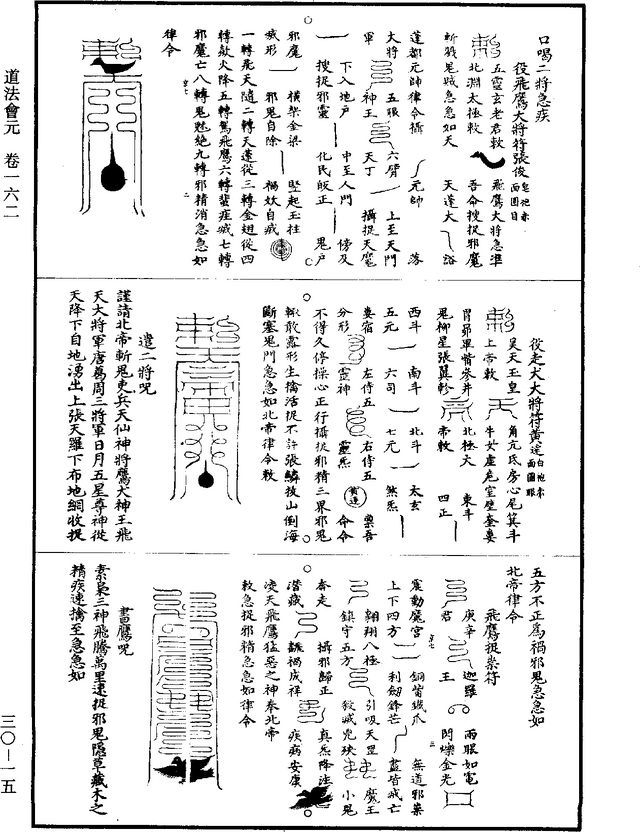 道法會元　卷一六二
三〇—一五
口喝二將急疾
役飛鷹大將符張俊
皂袍赤面圓目
五靈玄老君敕
飛鷹大將急準
北淵太極敕
吾命搜捉邪魔
斬戮鬼賊急急如天
天蓬大
諮
蓬都元帥律令攝
元帥
落
大將
五眼
六臂
上至天門
軍
神王
天丁
攝捉天魔
下入地戶
中至人門
傍及
搜捉邪靈
化民皈正
鬼戶
邪魔
橫架金梁
堅起玉柱
威形
邪鬼自除
禍妖自滅
一轉飛天隨二轉天蓬從三轉金翅從四
轉欻火降五轉駕飛鷹六轉蜚疰滅七轉
邪魔亡八轉鬼魅絕九轉邪精消急急如
律令
役走犬大將符黃逵
白袍赤面圓眼
昊天玉皇
角亢氐房心尾箕斗
上帝敕
牛女虛危室壁奎婁
胃昴畢觜參井
北極大
東斗
鬼柳星張翼軫
帝敕
四正
西斗
南斗
北斗
太玄
五元
六司
七元
煞炁
婁宿
左侍五
右侍五
稟吾
分形
靈神
靈炁
黃逵
命令
不得久停操心正行攝捉邪精三界邪鬼
輒敢露形生擒活捉不許張鱗拔山倒海
斷塞鬼門急急如北帝律令敕
遣二將呪
謹請北帝斬鬼吏兵天仙神將鷹犬神王飛
天大將軍唐葛周三將軍日月五星尊神從
天降下自地湧出上張天羅下布地網收捉
五方不正為禍邪鬼急急如
北帝律令
飛鷹捉祟符
庚辛
迦羅
兩眼如電
君
王
閃爍金光
震動魔宮
銅觜鐵爪
無道邪祟
上下四方
利劒鋒芒
盡皆滅亡
翱翔八極
引吸天罡
魔王
鎮守五方
收滅兇殃
小鬼
奔走
攝邪歸正
真炁降注
潛藏
讖禍成祥
疾病安康
凌天飛鷹猛惡之神奉北帝
敕急捉邪精急急如律令
書鷹呪
素梟三神飛騰萬里速捉邪鬼隱草藏木之
精疾速擒至急急如